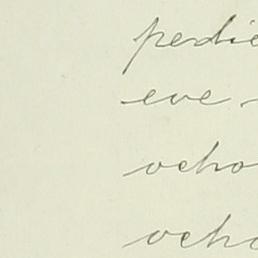 pedie
eve
ocho
ocho